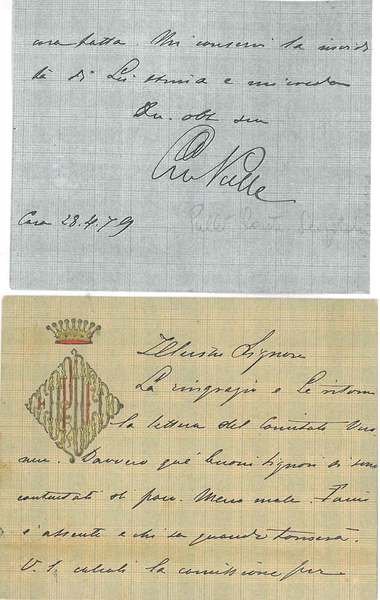 cosa fatta. Mi conservi la
di Lei stima e mi creda
obb. suo
Casa 28.4.79
Illustre Signore
La ringrazio e Le ritorno
la lettera del Comitato
Davvero que' buoni Signori si sono
contentati di poco. Meno male.
è assente e chi sa quando tornerà.
V. S. la commissione per